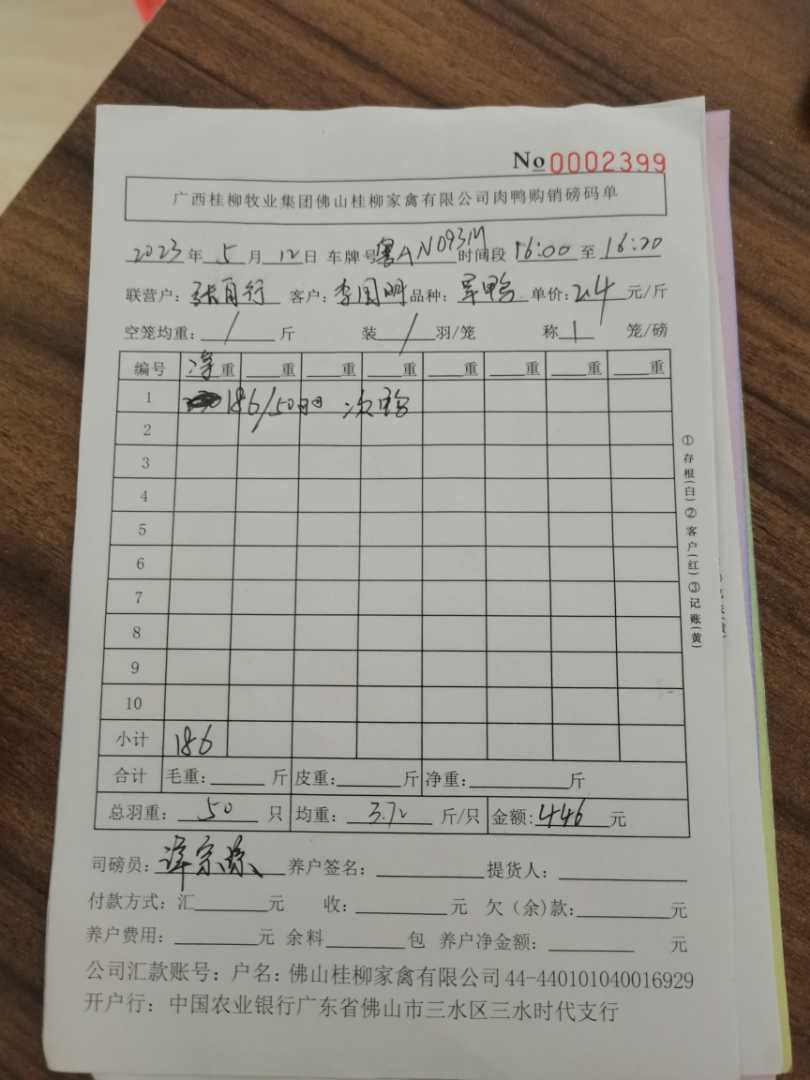 No 0002399
广西桂柳牧业集团佛山桂柳家禽有限公司肉鸭购销磅码单
2023年 5 月 12日 车牌号粤AN093M 时间段 16:00 至 16:20
联营户: 客户: 李国明 品种: 单价: 2.4 元/斤
空笼均重: / 斤 装 / 羽/笼 称 1 笼/磅
编号 净重 重 重 重 重 重 重 重
1 186/50 次鸭
2
3
4
5
6
7
8
9
10
小计 186
合计 毛重: 斤 皮重: 斤 净重: 斤
总羽重: 50 只 均重: 3.72 斤/只 金额: 446 元
司磅员: 养户签名: 提货人:
付款方式: 汇 元 收: 元 欠(余)款: 元
养户费用: 元 余料 包 养户净金额: 元
公司汇款账号: 户名: 佛山桂柳家禽有限公司 44-440101040016929
开户行: 中国农业银行广东省佛山市三水区三水时代支行
①存根(白)②客户(红)③记账(黄)